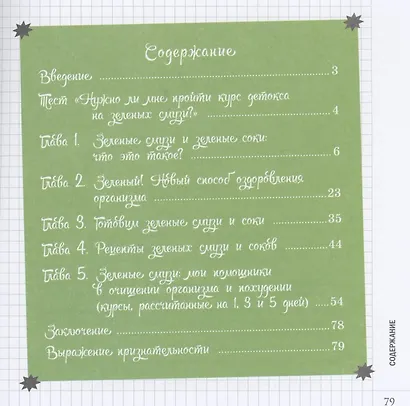 Содержание
Введение 3
Тест «Нужно ли мне пройти курс детокса
на зеленых смузи?» 4
Глава 1. Зеленые смузи и зеленые соки:
что это такое? 6
Глава 2. Зеленый! Новый способ оздоровления
организма 23
Глава 3. Готовим зеленые смузи и соки 35
Глава 4. Рецепты зеленых смузи и соков 44
Глава 5. Зеленые смузи: мои помощники
в очищении организма и похудении
(курсы, рассчитанные на 1, 3 и 5 дней) 54
Заключение 78
Выражение признательности 79
СОДЕРЖАНИЕ
79